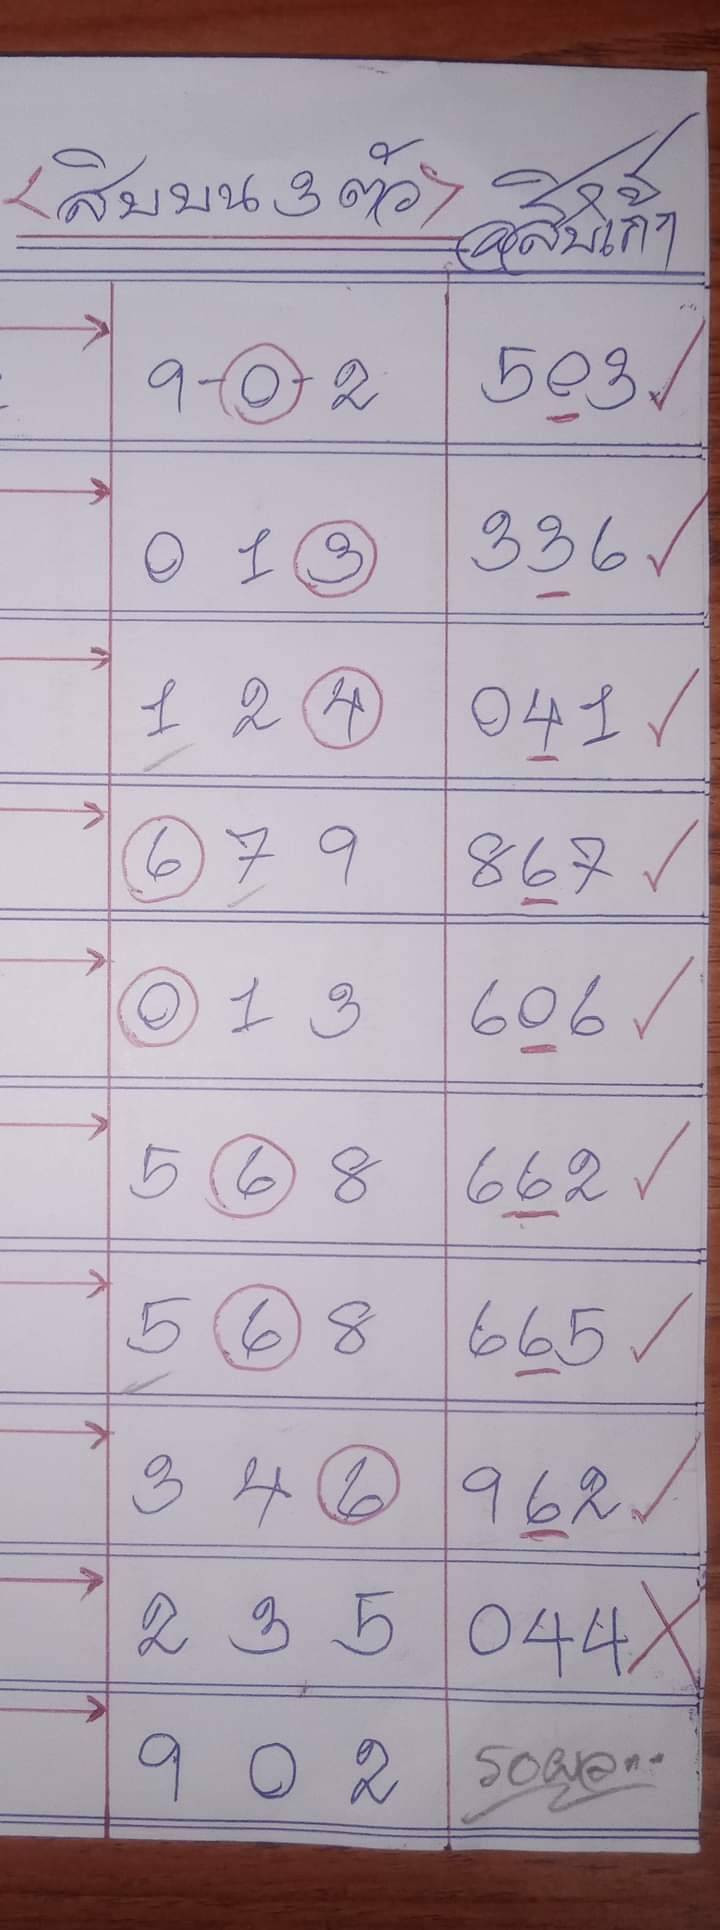 <สิบบน 3 ตัว>
สิบเก๊า
9-0-2 503 ✓
0 1 3 336 ✓
1 2 4 041 ✓
6 7 9 867 ✓
0 1 3 606 ✓
5 6 8 662 ✓
5 6 8 665 ✓
3 4 6 962 ✓
2 3 5 044 X
9 0 2 รอผล...